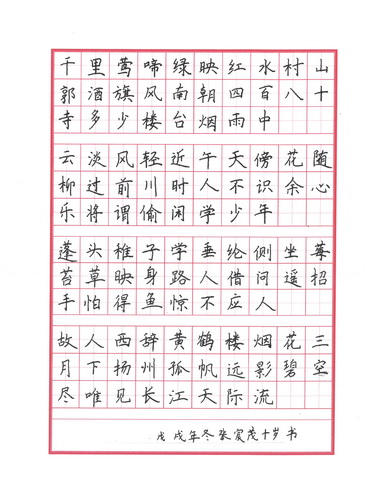 千里莺啼绿映红水村山
郭酒旗风南朝四百八十
寺多少楼台烟雨中
云淡风轻近午天傍花随
柳过前川时人不识余心
乐将谓偷闲学少年
蓬头稚子学垂纶侧坐莓
苔草映身路人借问遥招
手怕得鱼惊不应人
故人西辞黄鹤楼烟花三
月下扬州孤帆远影碧空
尽唯见长江天际流
戊戌年冬张茂十岁书